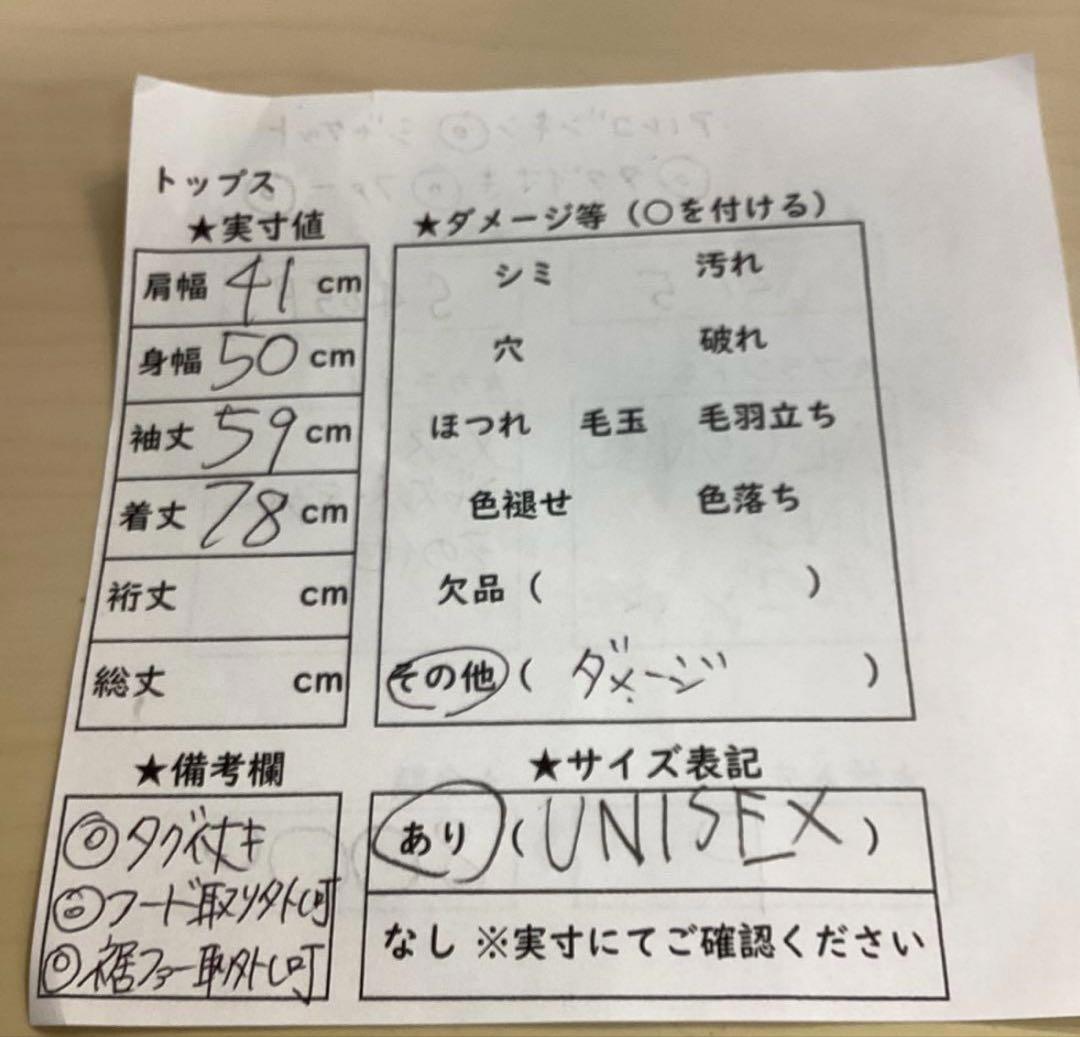 トップス
★実寸値
肩幅 41 cm
身幅 50 cm
袖丈 59 cm
着丈 78 cm
裄丈 cm
総丈 cm
★ダメージ等（○を付ける）
シミ 汚れ
穴 破れ
ほつれ 毛玉 毛羽立ち
色褪せ 色落ち
欠品（ ）
その他（ ダメージ ）
★備考欄
◎タグ付き
◎フード取り外し可
◎裾ファー取外し可
★サイズ表記
あり（UNISEX）
なし ※実寸にてご確認ください